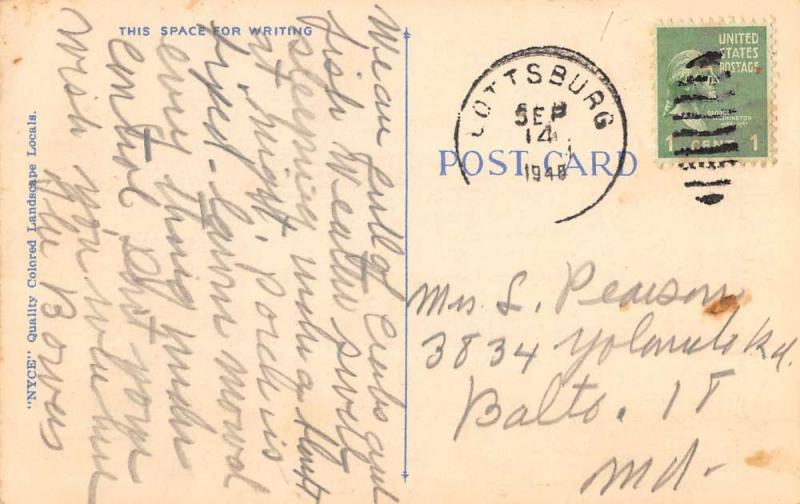 THIS SPACE FOR WRITING
We are full of Crabs and
fish Weather swell
sleeping under a blanket
at night. Porch is
fixed - Lawn mowed
every thing under
control. but you
wish you were here
The Bowers
"NYCE" Quality Colored Landscape Locals.
POST CARD
LOTTSBURG
SEP
14
1948
UNITED
STATES
POSTAGE
GEORGE
WASHINGTON
1 CENT 1
Mrs L. Pearson
3834 Yolando Rd.
Balto. 18
Md.